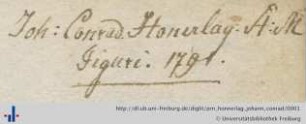 Joh: Conrad. Honerlag. A: M
Figuri. 1791.
http://dl.ub.uni-freiburg.de/diglit/am_honnerlag_johann_conrad/0001
© Universitätsbibliothek Freiburg